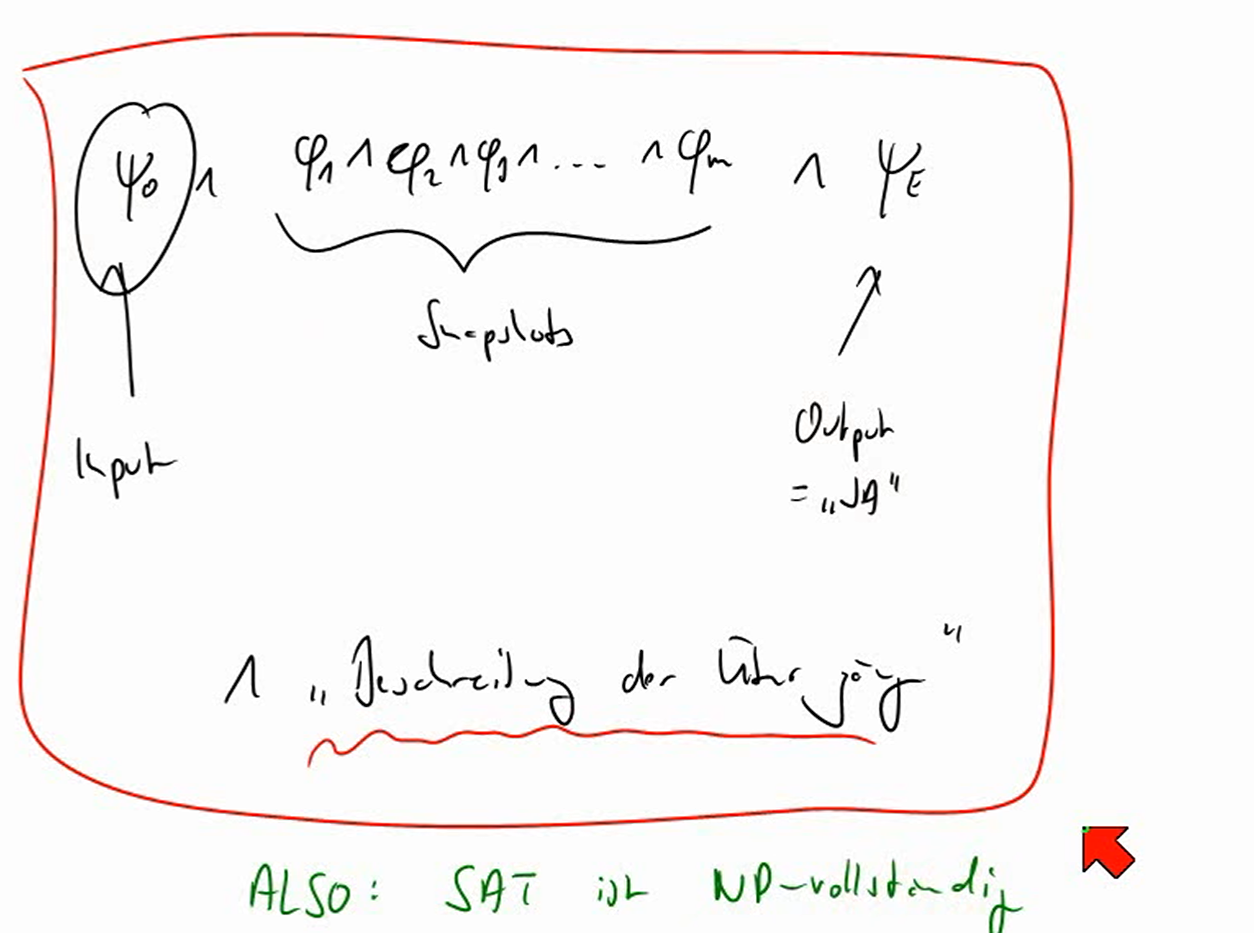 ψ₀ ∧ φ₁ ∧ φ₂ ∧ φ₃ ∧ .... ∧ φₘ ∧ ψ_E
Snapshots
Input
Output
= „JA"
∧ „Beschreibung der Übergänge"
ALSO: SAT ist NP-vollständig